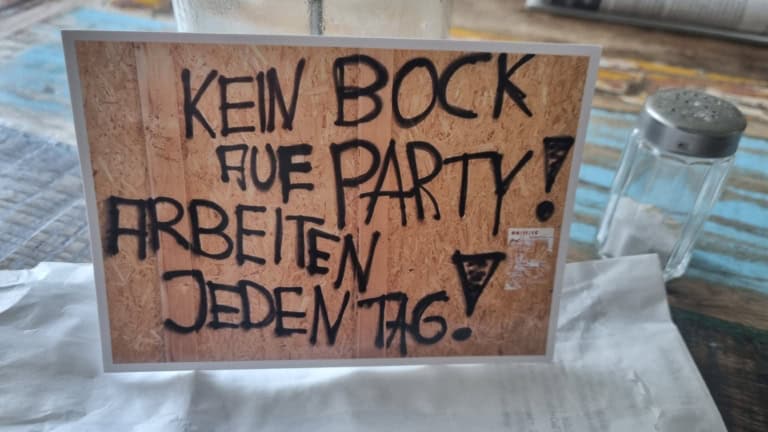 KEIN BOCK
AUF PARTY!
ARBEITEN
JEDEN TAG!